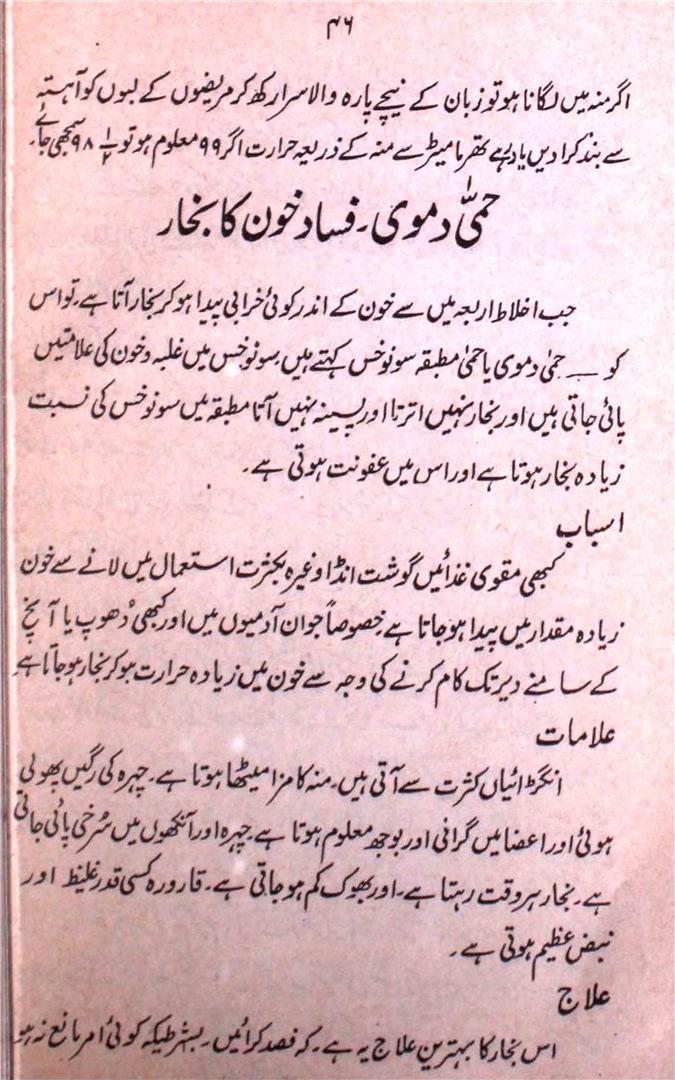 ۴۶
اگر منہ میں لگانا ہو تو زبان کے نیچے پارہ والا سرا رکھ کر مریضوں کے لبوں کو آہستہ
سے بند کرا دیں یاد رہے تھرمامیٹر سے منہ کے ذریعہ حرارت اگر ۹۹ معلوم ہو تو ۹۸ ۱/۲ سمجھی جائے۔
حمیّٰ دموی ۔ فساد خون کا بخار
جب اخلاط اربعہ میں سے خون کے اندر کوئی خرابی پیدا ہو کر بخار آتا ہے۔ تو اس
کو ــــ حمیٰ دموی یا حمیٰ مطبقہ سونوخس کہتے ہیں۔ سونوخس میں غلبہ و خون کی علامتیں
پائی جاتی ہیں اور بخار نہیں اترتا اور پسینہ نہیں آتا مطبقہ میں سونوخس کی نسبت
زیادہ بخار ہوتا ہے اور اس میں عفونت ہوتی ہے۔
اسباب
کبھی مقوی غذائیں گوشت انڈا وغیرہ بکثرت استعمال میں لانے سے خون
زیادہ مقدار میں پیدا ہو جاتا ہے۔ خصوصاً جوان آدمیوں میں اور کبھی دُھوپ یا آنچ
کے سامنے دیر تک کام کرنے کی وجہ سے خون میں زیادہ حرارت ہو کر بخار ہو جاتا ہے
علامات
انگڑائیاں کثرت سے آتی ہیں۔ منہ کا مزا میٹھا ہوتا ہے۔ چہرہ کی رگیں پھولی
ہوئی اور اعضا میں گرانی اور بوجھ معلوم ہوتا ہے۔ چہرہ اور آنکھوں میں سُرخی پائی جاتی
ہے۔ بخار ہر وقت رہتا ہے۔ اور بھوک کم ہو جاتی ہے۔ قارورہ کسی قدر غلیظ اور
نبض عظیم ہوتی ہے۔
علاج
اس بخار کا بہترین علاج یہ ہے۔ کہ فصد کرائیں۔ بشرطیکہ کوئی امر مانع نہ ہو